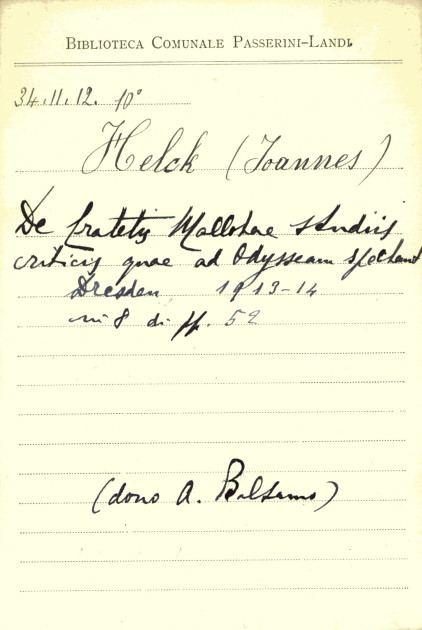 BIBLIOTECA COMUNALE PASSERINI-LANDI
34.11.12. 10°
Helck (Joannes)
De Cratetis Mallotae studiis
criticis quae ad Odysseam spectant
Dresden 1913-14
in 8 di pp. 52
(dono A. Balsamo)